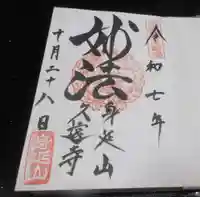 令和七年
妙法
身延山
久遠寺
十月二十八日